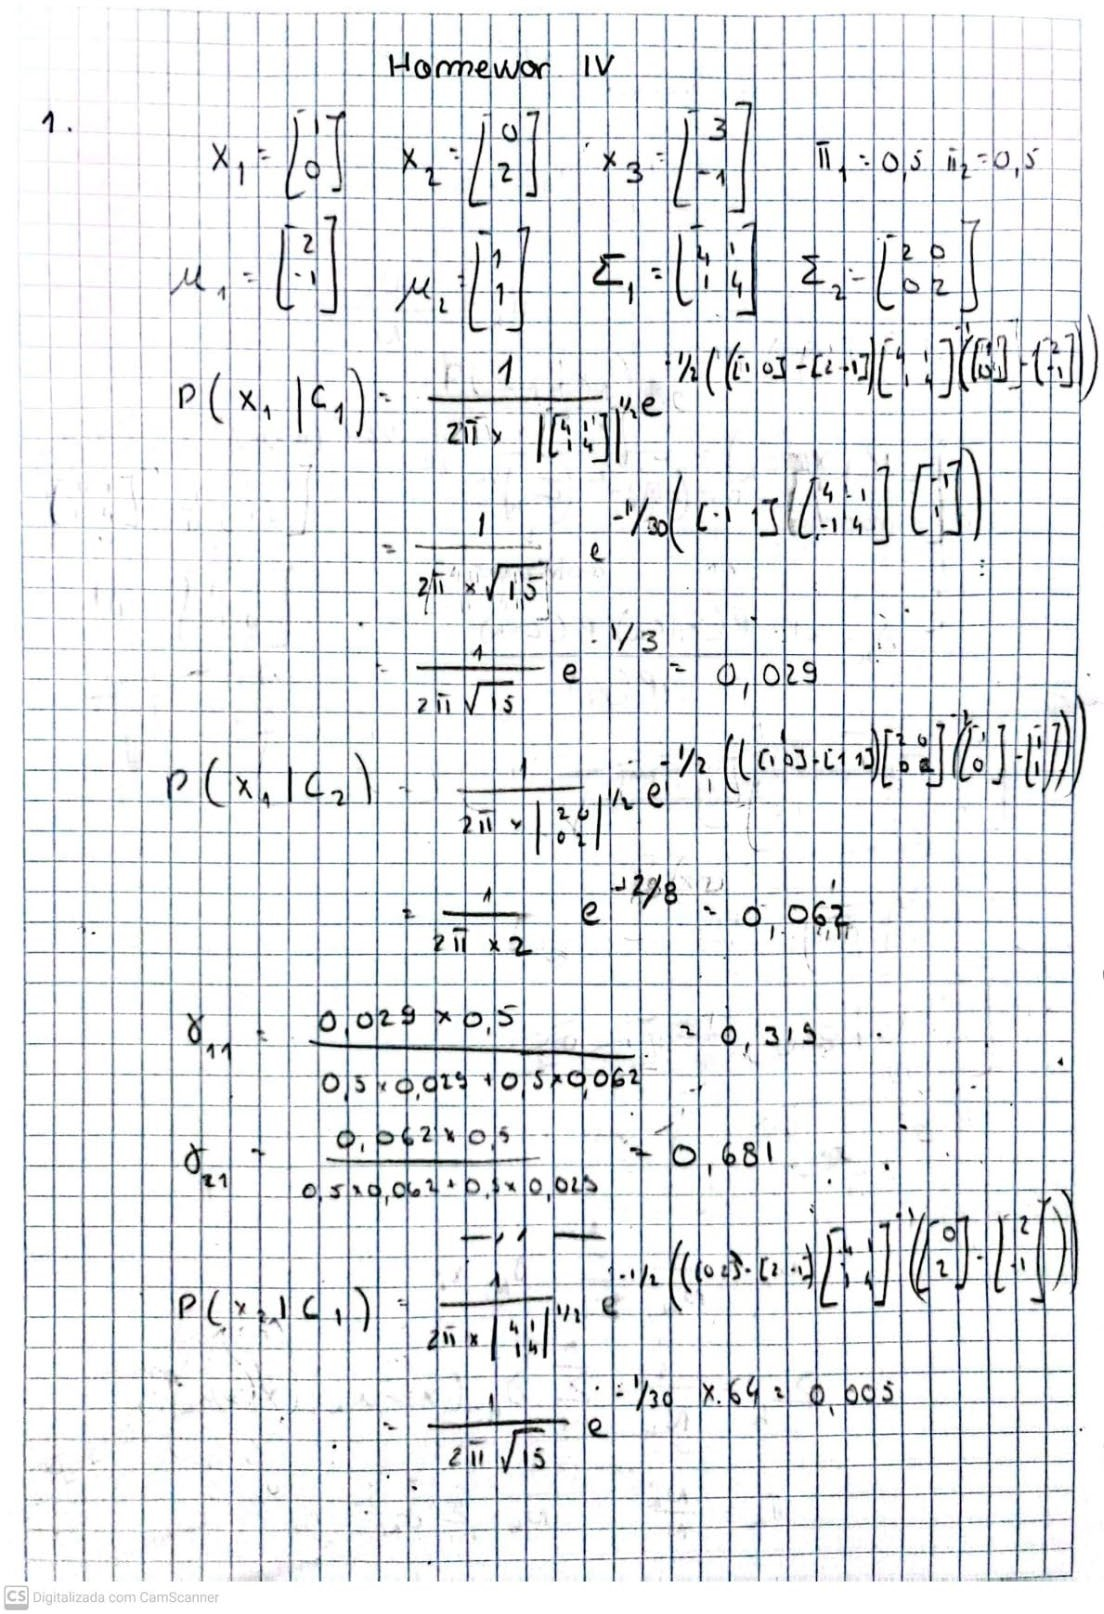 Homewor IV
1.
x₁ = [1 0] x₂ = [0 2] x₃ = [3 -1] π₁ = 0,5 π₂ = 0,5
μ₁ = [2 -1] μ₂ = [1 1] Σ₁ = [4 1 1 4] Σ₂ = [2 0 0 2]
P(x₁|C₁) = 1 / (2π × |[4 1 1 4]|^1/2) e^-1/2(([1 0]-[2 -1])[4 1 1 4]^-1([1 0]-[2 -1]))
= 1 / (2π × √15) e^-1/30([-1 1]([4 -1 -1 4] [-1 1])
= 1 / (2π √15) e^-1/3 = 0,029
P(x₁|C₂) = 1 / (2π × |2 0 0 2|^1/2) e^-1/2(([1 0]-[1 1])[2 0 0 2]^-1([1 0]-[1 1]))
= 1 / (2π × 2) e^-2/8 = 0,062
γ₁₁ = 0,029 × 0,5 / (0,5 × 0,029 + 0,5 × 0,062) = 0,319
γ₂₁ = 0,062 × 0,5 / (0,5 × 0,062 + 0,5 × 0,029) = 0,681
P(x₂|C₁) = 1 / (2π × |4 1 1 4|^1/2) e^-1/2(([0 2]-[2 -1])[4 1 1 4]^-1([0 2]-[2 -1]))
= 1 / (2π √15) e^-1/30 × 64 = 0,005
CS Digitalizada com CamScanner